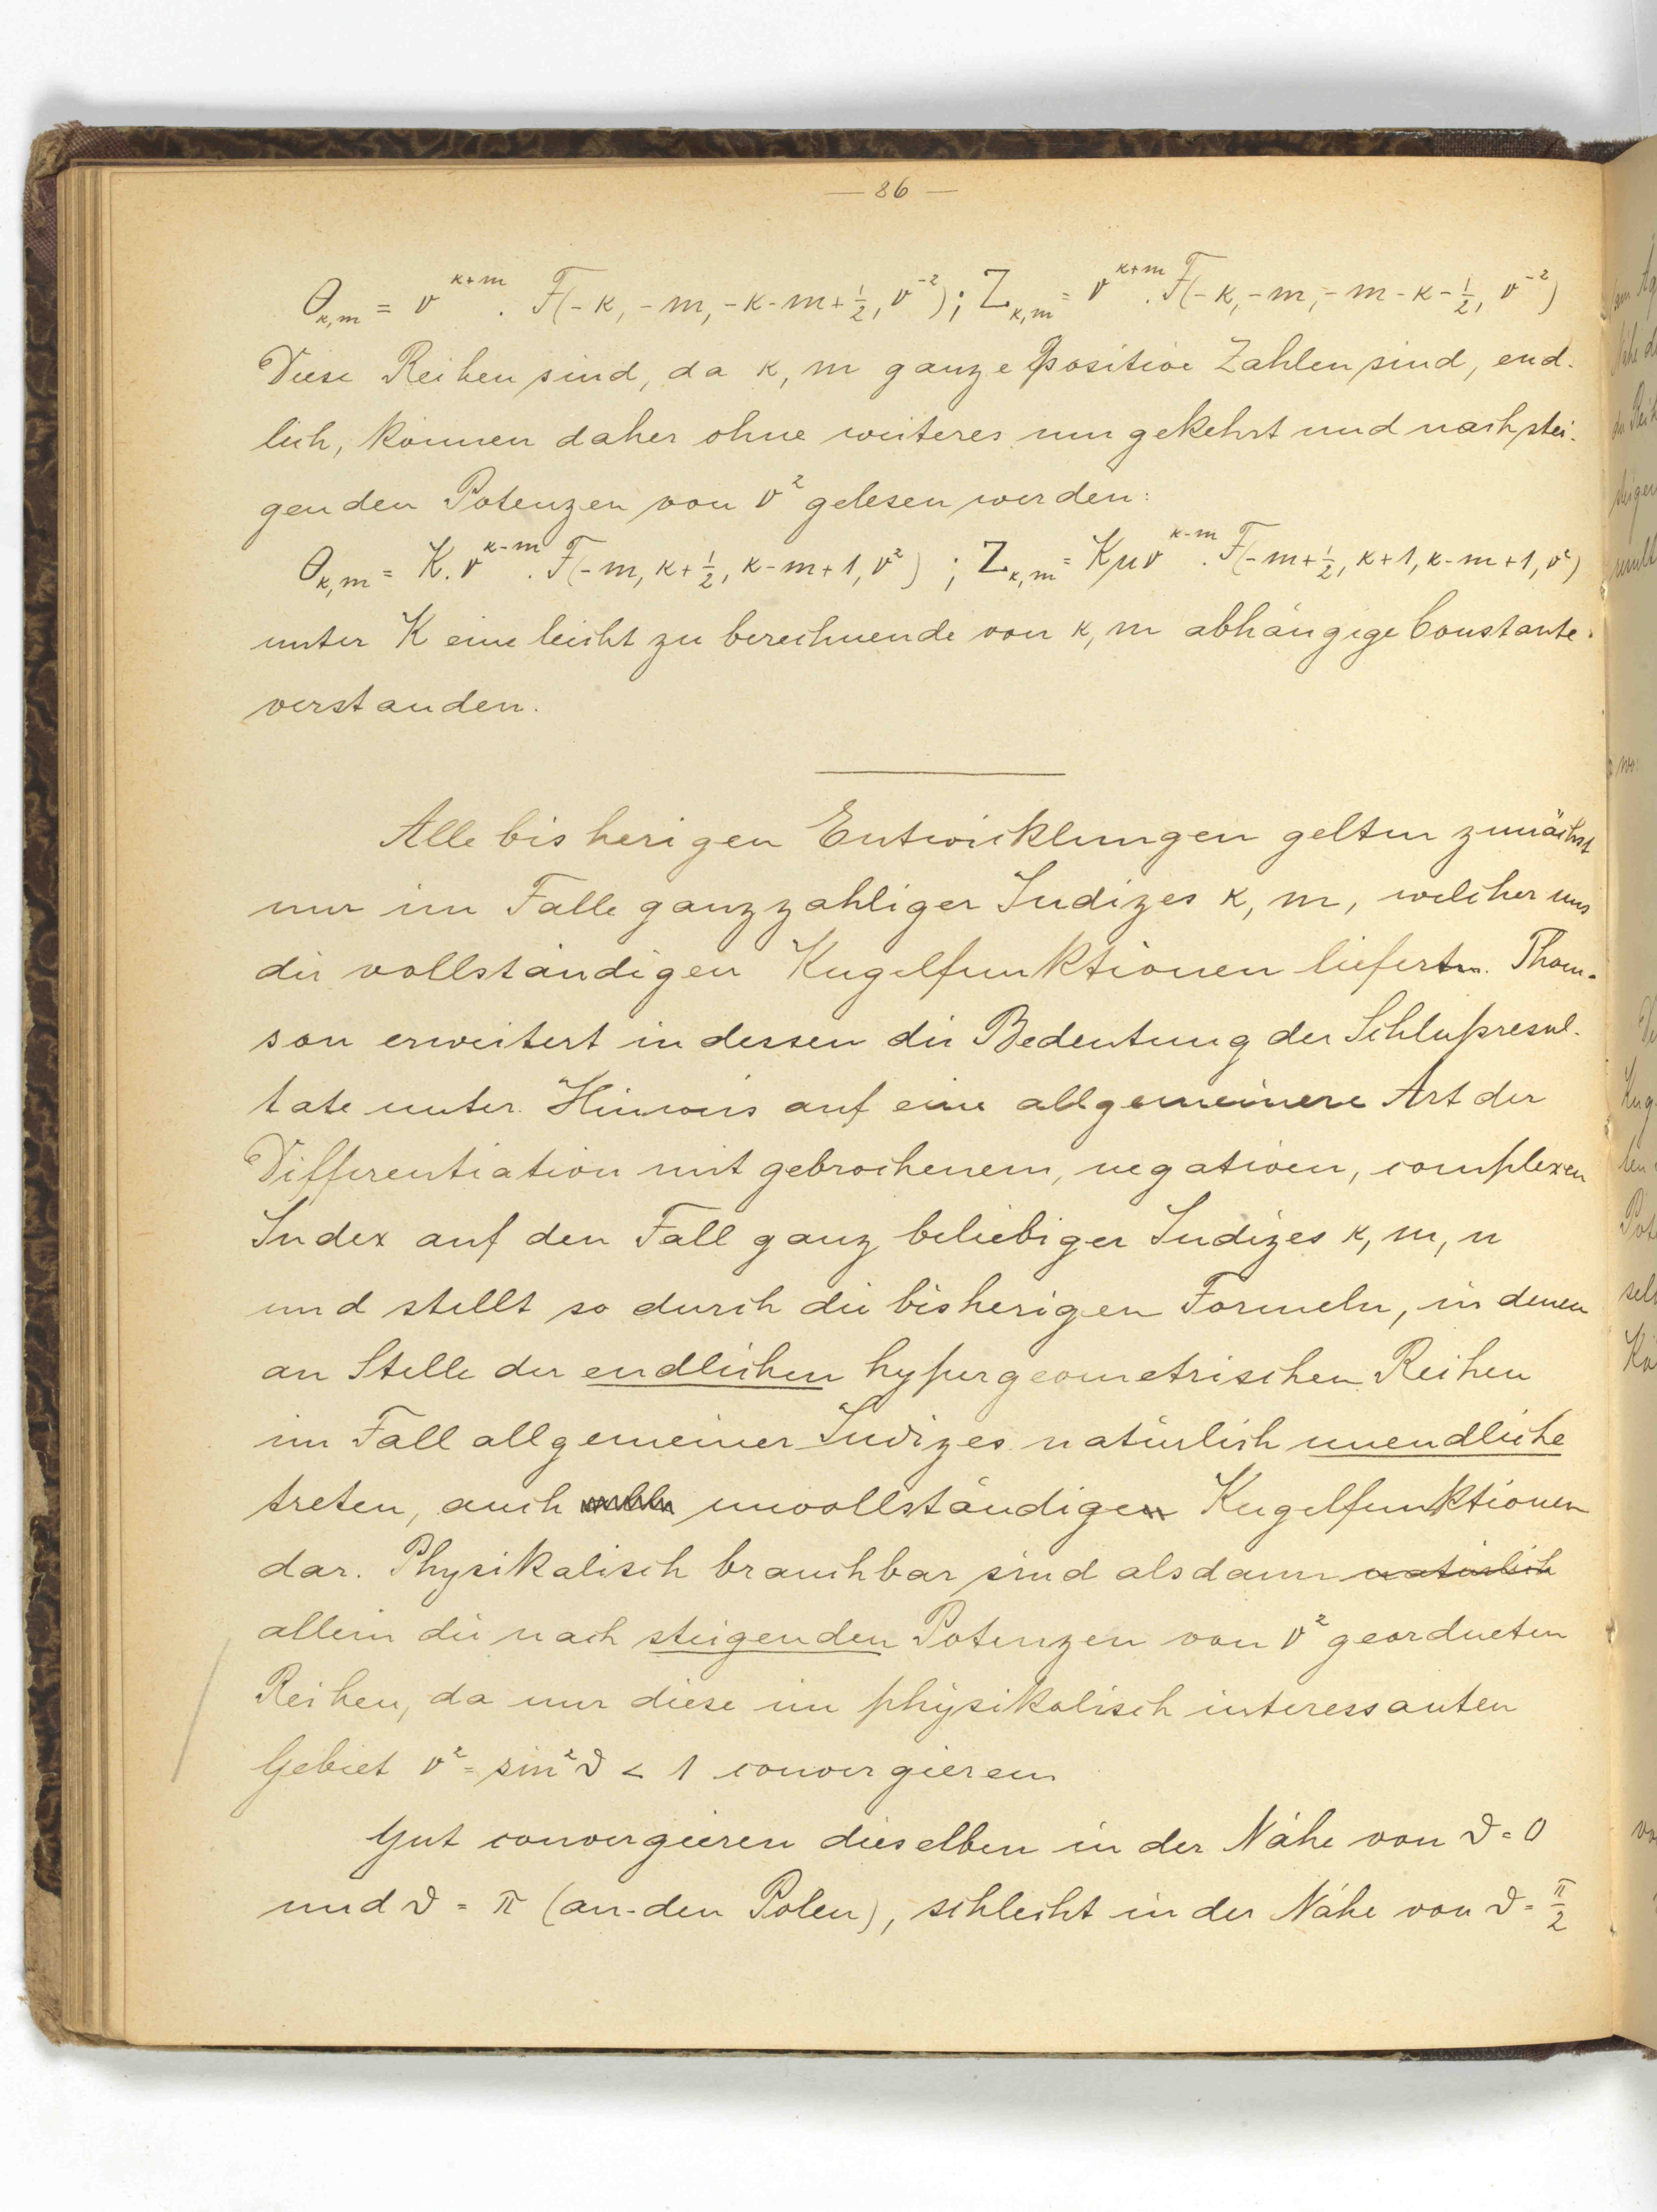 — 86 —
Θ_{κ,m} = ν^{κ+m} . F(-κ, -m, -κ-m+½, ν^{-2}); Z_{κ,m} = ν^{κ+m} . F(-κ, -m, -m-κ-½, ν^{-2})
Diese Reihen sind, da κ, m ganze positive Zahlen sind, end-
lich, können daher ohne weiteres umgekehrt und nach stei-
genden Potenzen von ν² gelesen werden:
Θ_{κ,m} = K. ν^{κ-m} . F(-m, κ+½, κ-m+1, ν²) ; Z_{κ,m} = Kμν^{κ-m} . F(-m+½, κ+1, κ-m+1, ν²)
unter K eine leicht zu berechnende von κ, m abhängige Constante
verstanden.
Alle bisherigen Entwicklungen gelten zunächst
nur im Falle ganzzahliger Indizes κ, m, welcher uns
die vollständigen Kugelfunktionen liefert. Thom-
son erweitert indessen die Bedeutung der Schlußresul-
tate unter Hinweis auf eine allgemeinere Art der
Differentiation mit gebrochenem, negativem, complexen
Index auf den Fall ganz beliebiger Indizes κ, m, n
und stellt so durch die bisherigen Formeln, in denen
an Stelle der endlichen hypergeometrischen Reihen
im Fall allgemeiner Indizes natürlich unendliche
treten, auch unvollständige Kugelfunktionen
dar. Physikalisch brauchbar sind alsdann natürlich
allein die nach steigenden Potenzen von ν² geordneten
Reihen, da nur diese im physikalisch interessanten
Gebiet ν² = sin²ϑ < 1 convergieren
Gut convergieren dieselben in der Nähe von ϑ = 0
und ϑ = π (an den Polen), schlecht in der Nähe von ϑ = π/2